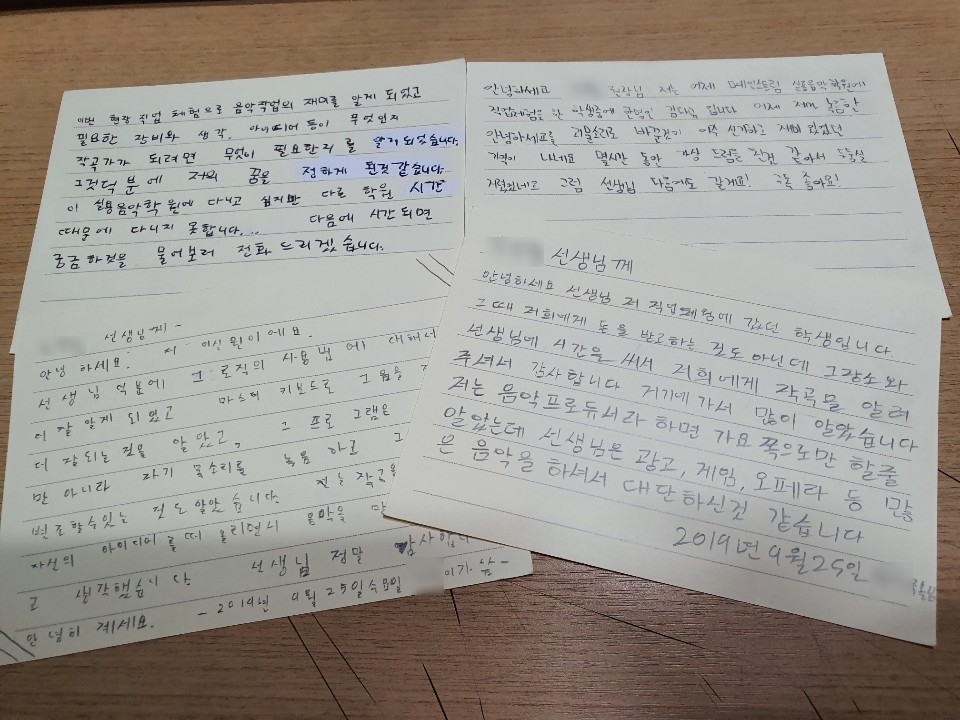 이번 현장 직업 체험으로 음악작업의 재미를 알게 되었고
필요한 장비와 생각, 아이디어 등이 무엇인지
작곡가가 되려면 무엇이 필요한지를 알기 되었습니다.
그것덕분에 저의 꿈을 전하게 된것같습니다.
이 실용음악학원에 다니고 싶지만 다른 학원 시간
때문에 다니지 못합니다... 다음에 시간되면
궁금하것을 물어보러 전화 드리겠습니다.
안녕하세요 원장님 저는 어제 메인스트림 실용음악학원에
직업체험을 한 학생중에 한명인 입니다 어제 제가 녹음한
안녕하세요를 괴물소리로 바꿀것이 아주 신기하고 재미 있었던
기억이 나네요 몇시간 동안 가상 드럼을 친것 같아서
그럼 선생님 다음에도 갈게요!
선생님께-
안녕하세요. 저 이신원이에요.
선생님 덕분에 그 로직의 사용법에 대해서
더 잘 알게 되었고 마스터 키보드로 그 음을
더 잘되는 것을 알았고, 그 프로그램은
만 아니라 자기 목소리를 녹음하고 그
변조할수있는 것도 알았습니다. 전는 작곡을
자신의 아이디어를 떠올리면서 음악을 만
고 생각했습니다 선생님 정말 감사합니
안녕히 계세요. -2019년 9월 25일 수요일 이가 씀-
선생님께
안녕하세요 선생님 저 직업체험에 갔던 학생입니다
그때 저희에게 돈을 받고하는 것도 아닌데 그장소와
선생님에 시간을 써서 저희에게 작곡을 알려
주셔서 감사합니다 거기에 가서 많이 알았습니다
저는 음악프로듀서라 하면 가요 쪽으로만 할줄
알았는데 선생님은 광고, 게임, 오페라 등 많
은 음악을 하셔서 대단하신것 같습니다
2019년 9월 25일 올림